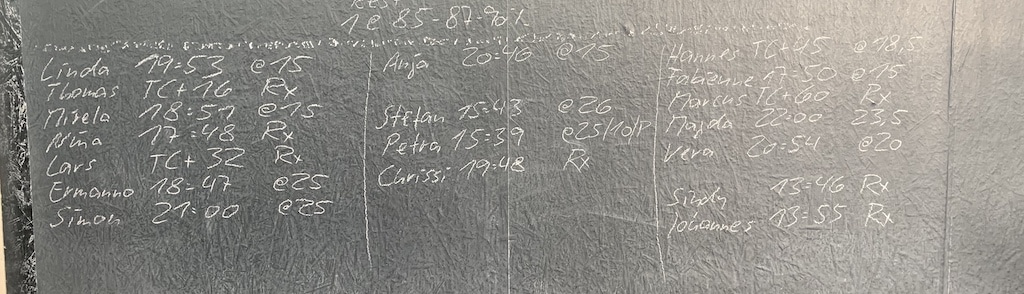 REST
1 @ 85-87-90%
Linda 19:53 @15
Thomas TC+16 Rx
Mirela 18:51 @15
17:48 Rx
Lars TC+32 Rx
Ermanno 18-47 @25
Simon 21:00 @25
Anja 20:46 @15
Stefan 15:43 @26
Petra 15:39 @25/10/P
Chrissi 19:48 Rx
Hannes TC+45 @18,5
Fabienne 17:50 @15
Marcus TC+60 Rx
Majda 22:00 23,5
Vera 20:54 @20
Sindy 13:46 Rx
Johannes 13:55 Rx